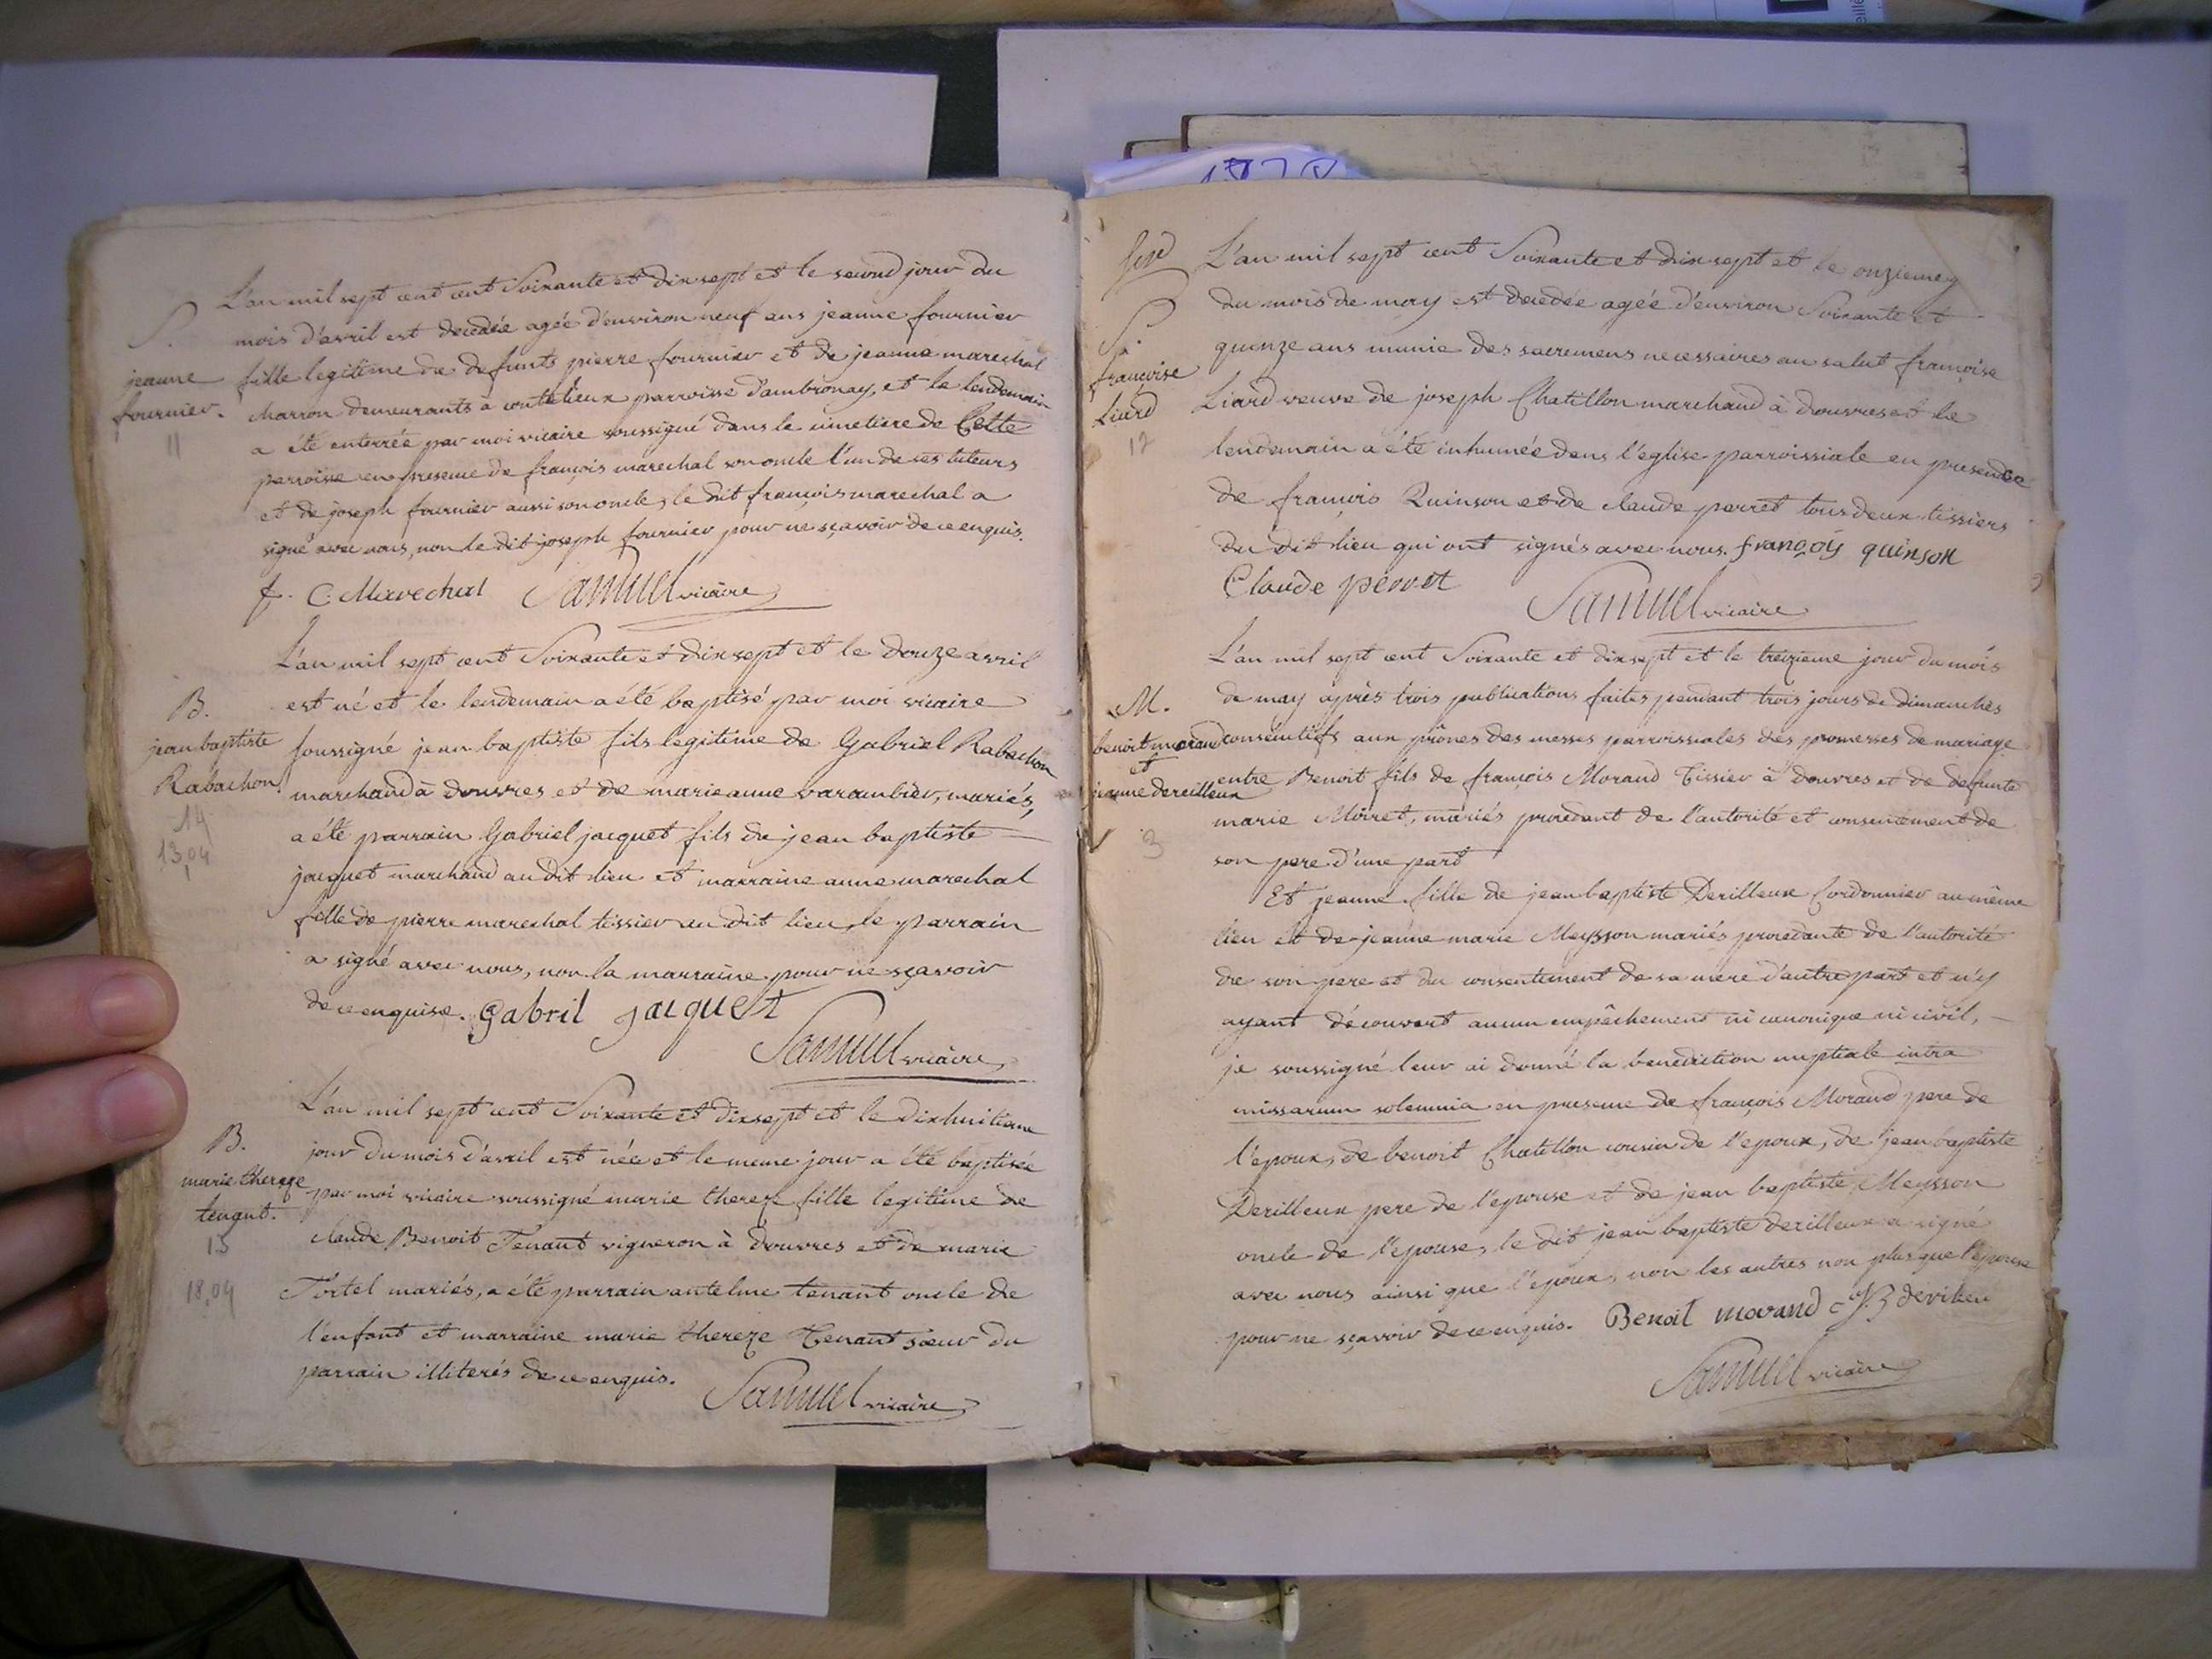 S.
jeanne
fournier.
11
L'an mil sept cent cent Soixante et dix sept et le second jour du
mois d'avril est decedée agée d'environ neuf ans jeanne fournier
fille legitime de defunts pierre fournier et de jeanne marechal
charron demeurants à parroisse d'ambronay, et le lendemain
a été enterrée par moi vicaire soussigné dans le cimetiere de Cette
parroisse en presence de françois marechal son oncle l'un de ses tuteurs
et de joseph fournier aussi son oncle, le dit françois marechal a
signé avec nous, non le dit joseph fournier pour ne sçavoir de ce enquis.
f. C. Marechal Samuel vicaire
B.
jean baptiste
Rabachon
14
13,04
L'an mil sept cent Soixante et dix sept et le douze avril
est né et le lendemain a été baptisé par moi vicaire
soussigné jean baptiste fils legitime de Gabriel Rabachon
marchand à douvres et de marie anne varambier, mariés,
a été parrain Gabriel jacquet fils de jean baptiste
jacquet marchand au dit lieu et marraine anne marechal
fille de pierre marechal tissier au dit lieu, le parrain
a signé avec nous, non la marraine pour ne sçavoir
de ce enquise. Gabril jacquet
Samuel vicaire
B.
marie thereze
tenant.
15
18,04
L'an mil sept cent Soixante et dix sept et le dixhuitieme
jour du mois d'avril est née et le meme jour a été baptisée
par moi vicaire soussigné marie thereze fille legitime de
claude Benoit Tenant vigneron à douvres et de marie
Tortel mariés, a été parrain antelme tenant oncle de
l'enfant et marraine marie thereze Tenant sœur du
parrain illiterés de ce enquis.
Samuel vicaire
S.
françoise
Liard
12
L'an mil sept cent Soixante et dix sept et le onzieme
du mois de may est decedée agée d'environ Soixante et
quinze ans munie des sacremens necessaires au salut françoise
Liard veuve de joseph Chatillon marchand à douvres et le
lendemain a été inhumée dans l'église parroissiale en presence
de françois Quinson et de claude perret tous deux tissiers
du dit lieu qui ont signés avec nous. françois quinson
Claude peroet
Samuel vicaire
M.
benoit morand
et
jeanne dereilleux
3
L'an mil sept cent Soixante et dix sept et le treizieme jour du mois
de may après trois publications faites pendant trois jours de dimanches
consécutifs aux prônes des messes parroissiales des promesses de mariage
entre Benoit fils de françois Morand Tissier à douvres et de defunte
marie Moiret, mariés procedant de l'autorité et consentement de
son pere d'une part
Et jeanne fille de jean baptiste Derilleux Cordonnier au même
lieu et de jeanne marie Meysson mariés procedante de l'autorité
de son pere et du consentement de sa mere d'autre part et n'y
ayant découvert aucun empêchement ni canonique ni civil,
je soussigné leur ai donné la benediction nuptiale intra
missarum solemnia en presence de françois Morand pere de
l'epoux, de benoit Chatillon cousin de l'epoux, de jean baptiste
Derilleux pere de l'epouse et de jean baptiste Meysson
oncle de l'epouse, le dit jean baptiste derilleux a signé
avec nous ainsi que l'epoux, non les autres non plus que l'epouse
pour ne sçavoir de ce enquis. Benoit morand JB derilieu
Samuel vicaire